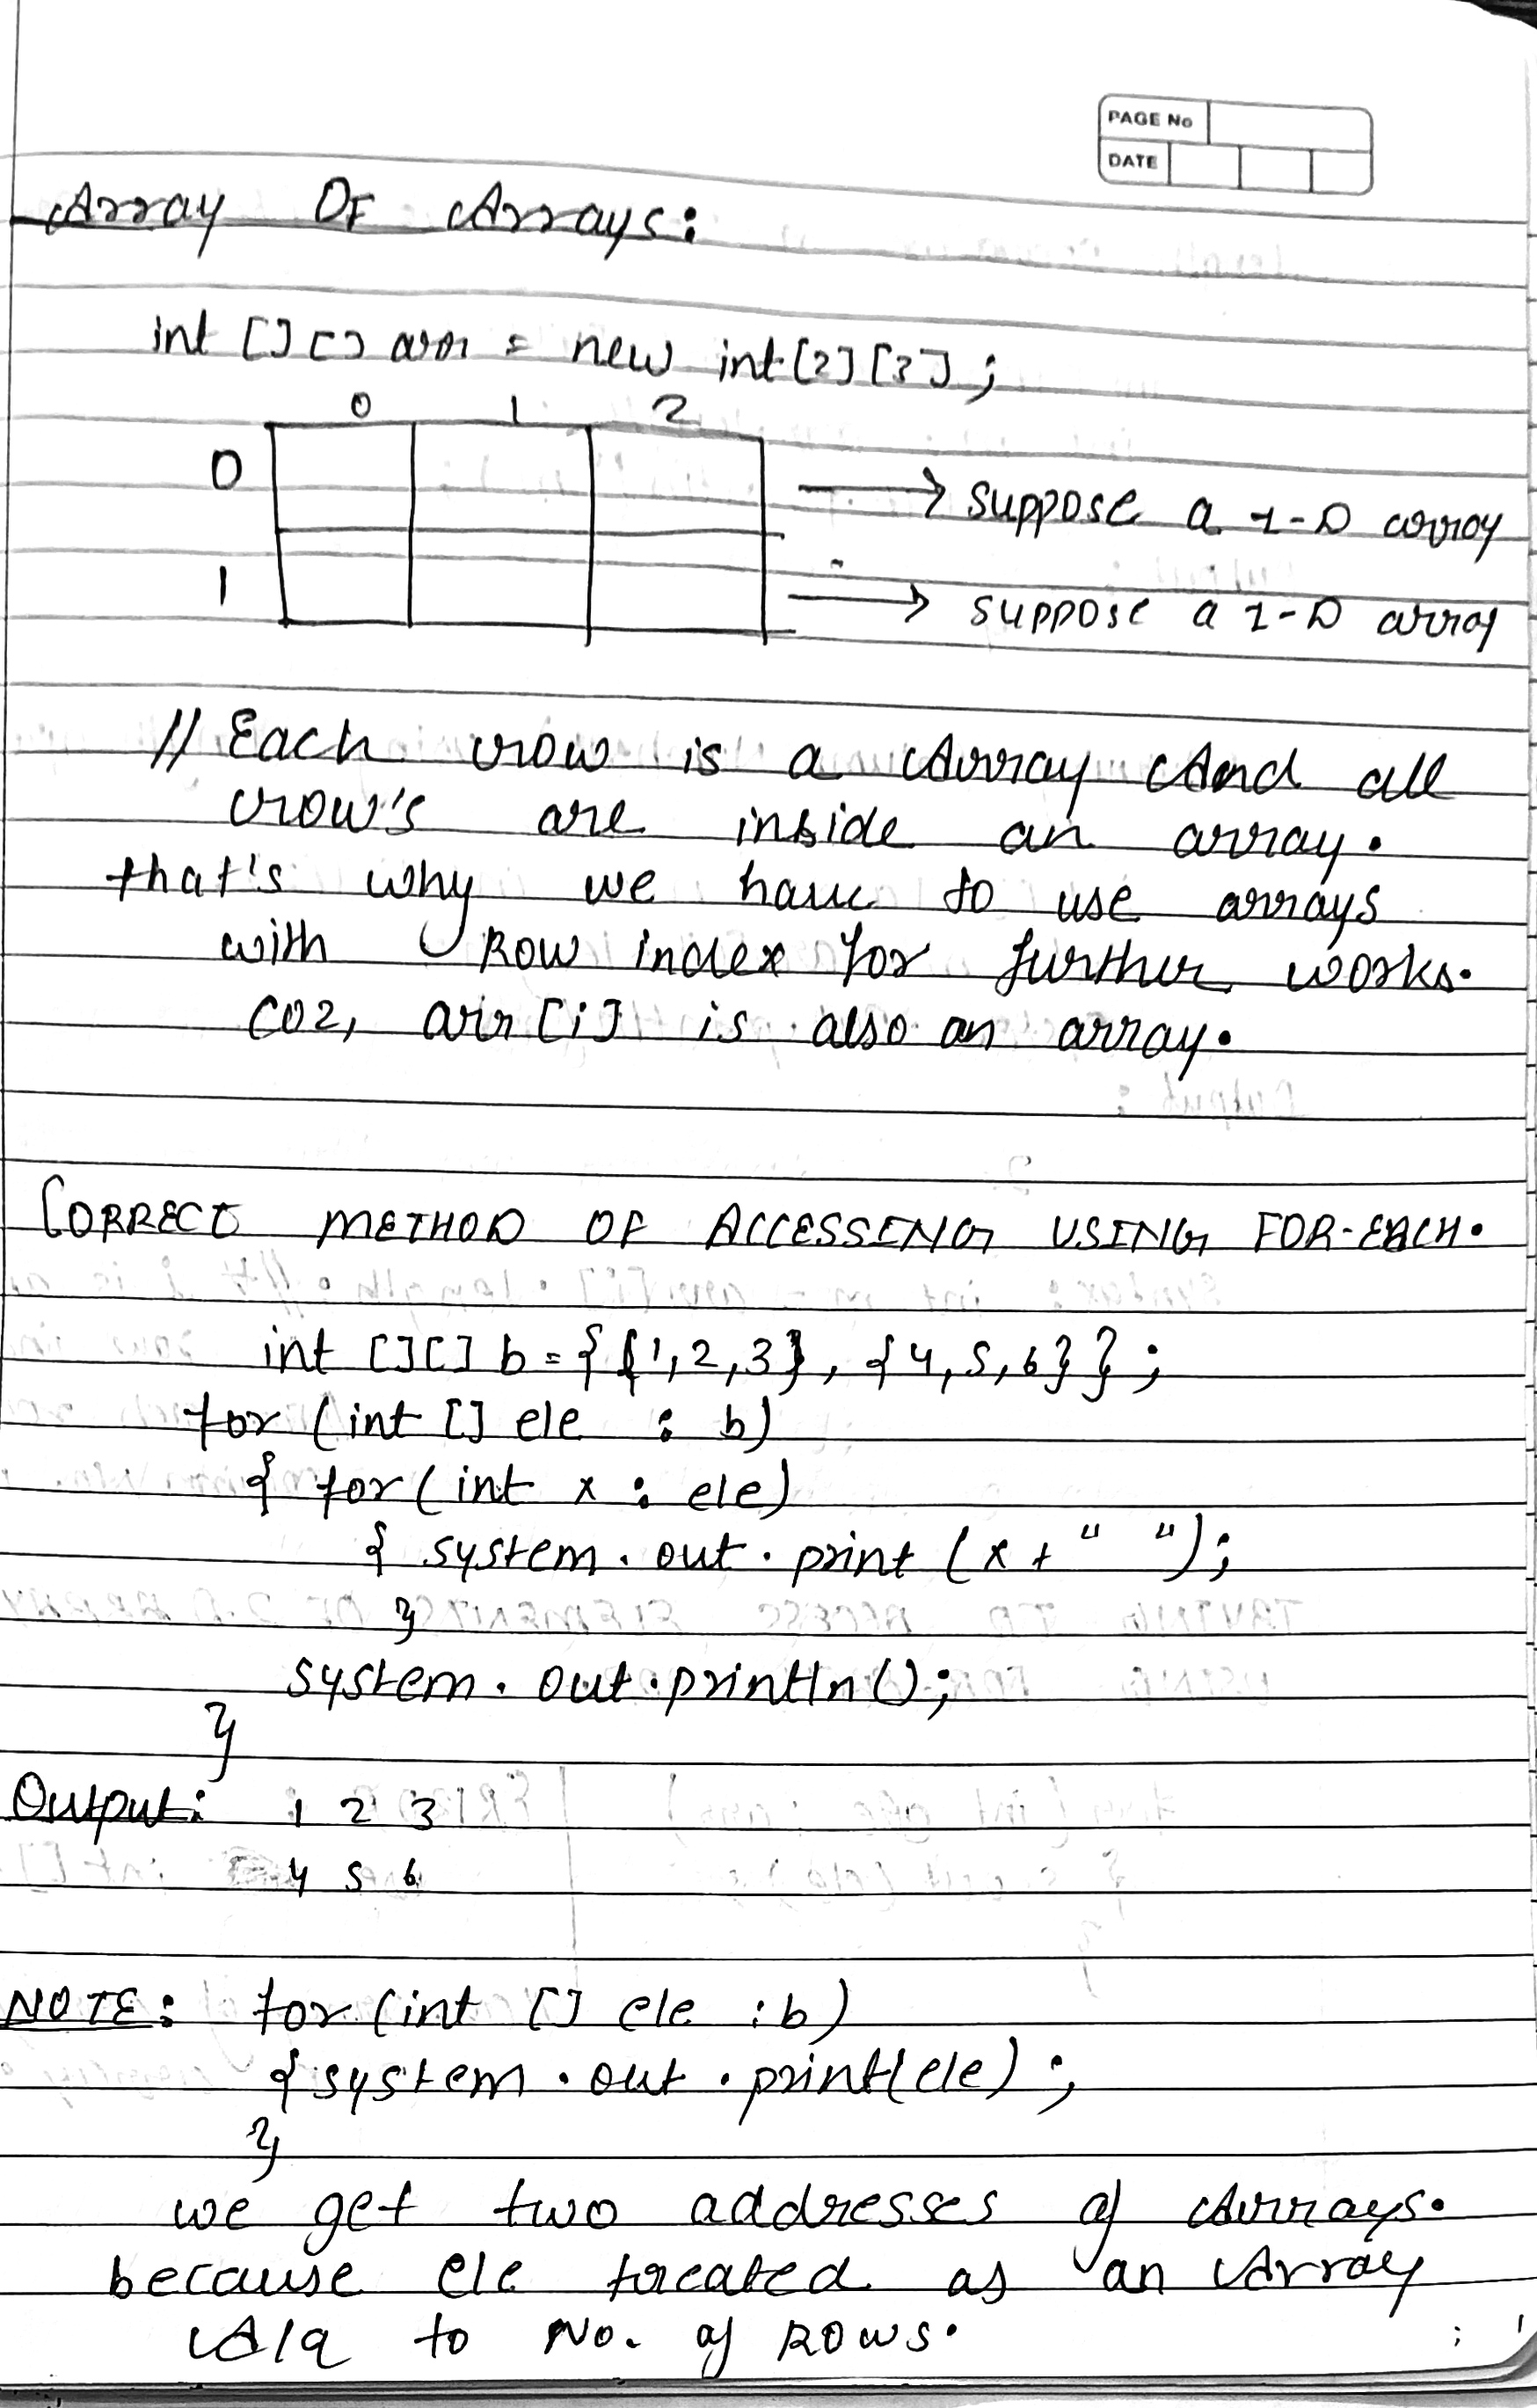 PAGE No
DATE
Array OF Arrays:
int [] [] arr = new int [2] [3];
0 1 2
0 → suppose a 1-D array
1 → suppose a 1-D array
// Each row is a Array And all
row's are inside an array.
that's why we have to use arrays
with Row index for further works.
COZ, arr [i] is also an array.
CORRECT METHOD OF ACCESSING USING FOR-EACH.
int [][] b = {{1,2,3}, {4,5,6}};
for (int [] ele : b)
{ for (int x : ele)
{ system.out.print (x + " ");
}
system.out.println();
}
Output: 1 2 3
4 5 6
NOTE: for (int [] ele :b)
{ system.out.print(ele);
}
we get two addresses of Arrays.
because ele treated as an Array
A/q to No. of ROWS.